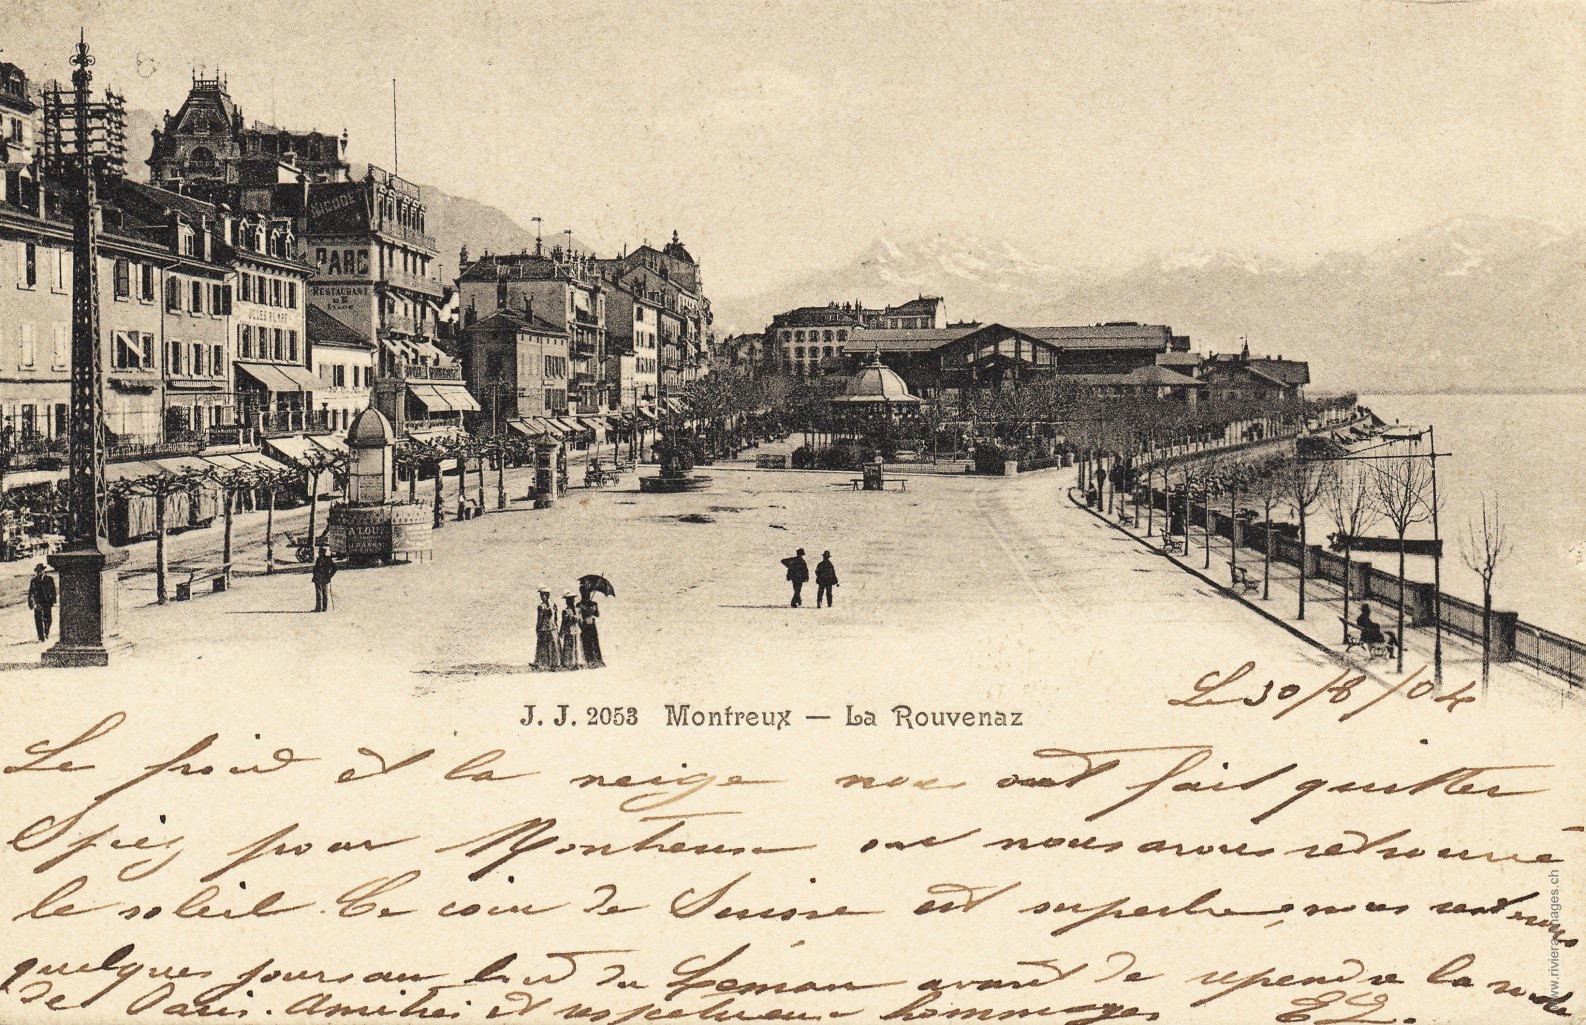 NICODET
PARC
RESTAURANT
A LOUER
J. J. 2053 Montreux – La Rouvenaz
Le 30/8/04
Le froid et la neige nous ont fait quitter
Spiez pour Montreux où nous avons retrouvé
le soleil. Ce coin de Suisse est superbe, nous restons
quelques jours au bord du Leman avant de rependre la route
de Paris. Amitiés et respectueux hommages
www.riviera-images.ch